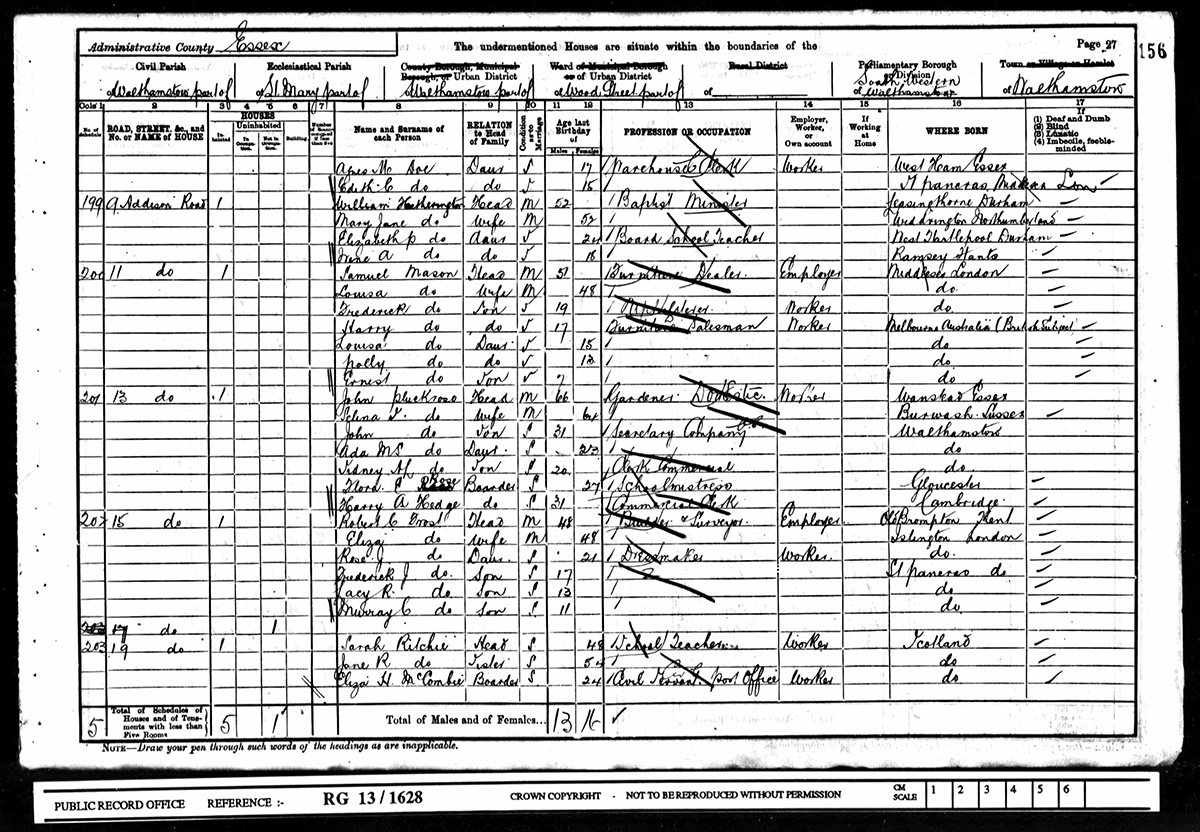 Administrative County Essex
The undermentioned Houses are situate within the boundaries of the
Page 27
156
Civil Parish
of Walthamstow part of
Ecclesiastical Parish
of St. Mary part of
County Borough, Municipal
Borough, or Urban District
of Walthamstow part of
Ward of Municipal Borough
or of Urban District
of Wood Street part of
Rural District
of
Parliamentary Borough
or Division
of South Western Walthamstow
Town or Village or Hamlet
of Walthamstow
Cols 1 2 3 4 5 6 7 8 9 10 11 12 13 14 15 16 17
No. of Schedule
ROAD, STREET, &c., and No. or NAME of HOUSE
HOUSES
Inhabited
Uninhabited
In Occupation
Not in Occupation
Building
Name and Surname of each Person
RELATION to Head of Family
Condition as to Marriage
Age last Birthday of
Males Females
PROFESSION OR OCCUPATION
Employer, Worker, or Own account
If Working at Home
WHERE BORN
If
(1) Deaf and Dumb
(2) Blind
(3) Lunatic
(4) Imbecile, feeble-minded
Agnes M Doe Daur S 17 Warehouse Clerk Worker West Ham Essex
Edith C do do S 15 St pancras Lon
199 9 Addison Road 1 William Hetherington Head M 52 Baptist Minister Durham
Mary Jane do Wife M 52 Widdrington Northumberland
Elizabeth P do Daur S 24 Board School Teacher West Hartlepool Durham
Irene A do do S 18 Ramsey Hants
200 11 do 1 Samuel Mason Head M 51 Furniture Dealer Employer Middlesex London
Louisa do Wife M 48 do
Frederick do Son S 19 Upholsterer Worker do
Harry do do S 17 Furniture Salesman Worker Melbourne Australia (British Subject)
Louisa do Daur S 15 do
Polly do do S 13 do
Ernest do Son S 7 do
201 13 do 1 John Pluckrose Head M 66 Gardener Domestic Worker Wanstead Essex
Eliza J. do Wife M 64 Burwash Sussex
John do Son S 31 Secretary Company Walthamstow
Ada do Daur S 23 do
Sidney do Son S 20 Clerk Commercial do
Flora Rose Boarder S 27 Schoolmistress Gloucester
Harry A Hedge do S 31 Commercial Clerk Cambridge
202 15 do 1 Robert C Frost Head M 48 Builder & Surveyor Employer Old Brompton Kent
Eliza do Wife M 48 Islington London
Rose J do Daur S 21 Dressmaker Worker do
Frederick J do Son S 17 St pancras do
R. do Son S 13 do
Murray C do Son S 11 do
17 do 1
203 19 do 1 Sarah Ritchie Head S 48 School Teacher Worker Scotland
Jane R do Sister S do
Eliza H McCombie Boarder S 24 Civil Servant post Office Worker do
5 Total of Schedules of Houses and of Tenements with less than Five Rooms 5 1 Total of Males and of Females... 13 16
NOTE—Draw your pen through such words of the headings as are inapplicable.
PUBLIC RECORD OFFICE REFERENCE :- RG 13/1628 CROWN COPYRIGHT - NOT TO BE REPRODUCED WITHOUT PERMISSION CM SCALE 1 2 3 4 5 6